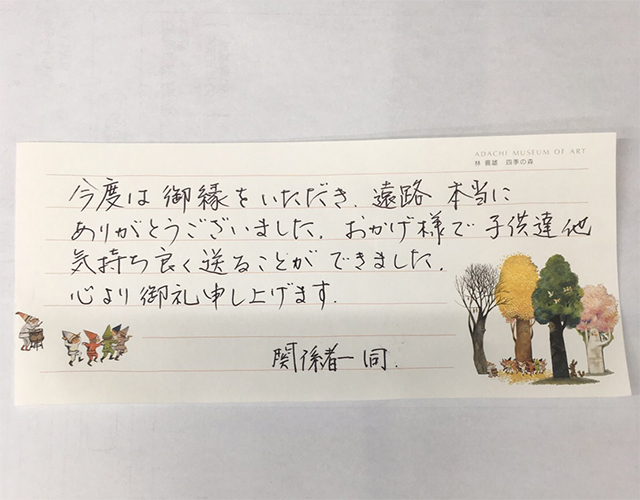 ADACHI MUSEUM OF ART
林 義雄 四季の森
今度は 御縁をいただき、遠路 本当に
ありがとうございました。おかげ様で 子供達他
気持ち良く送ることが できました。
心より御礼申し上げます。
関係者一同.